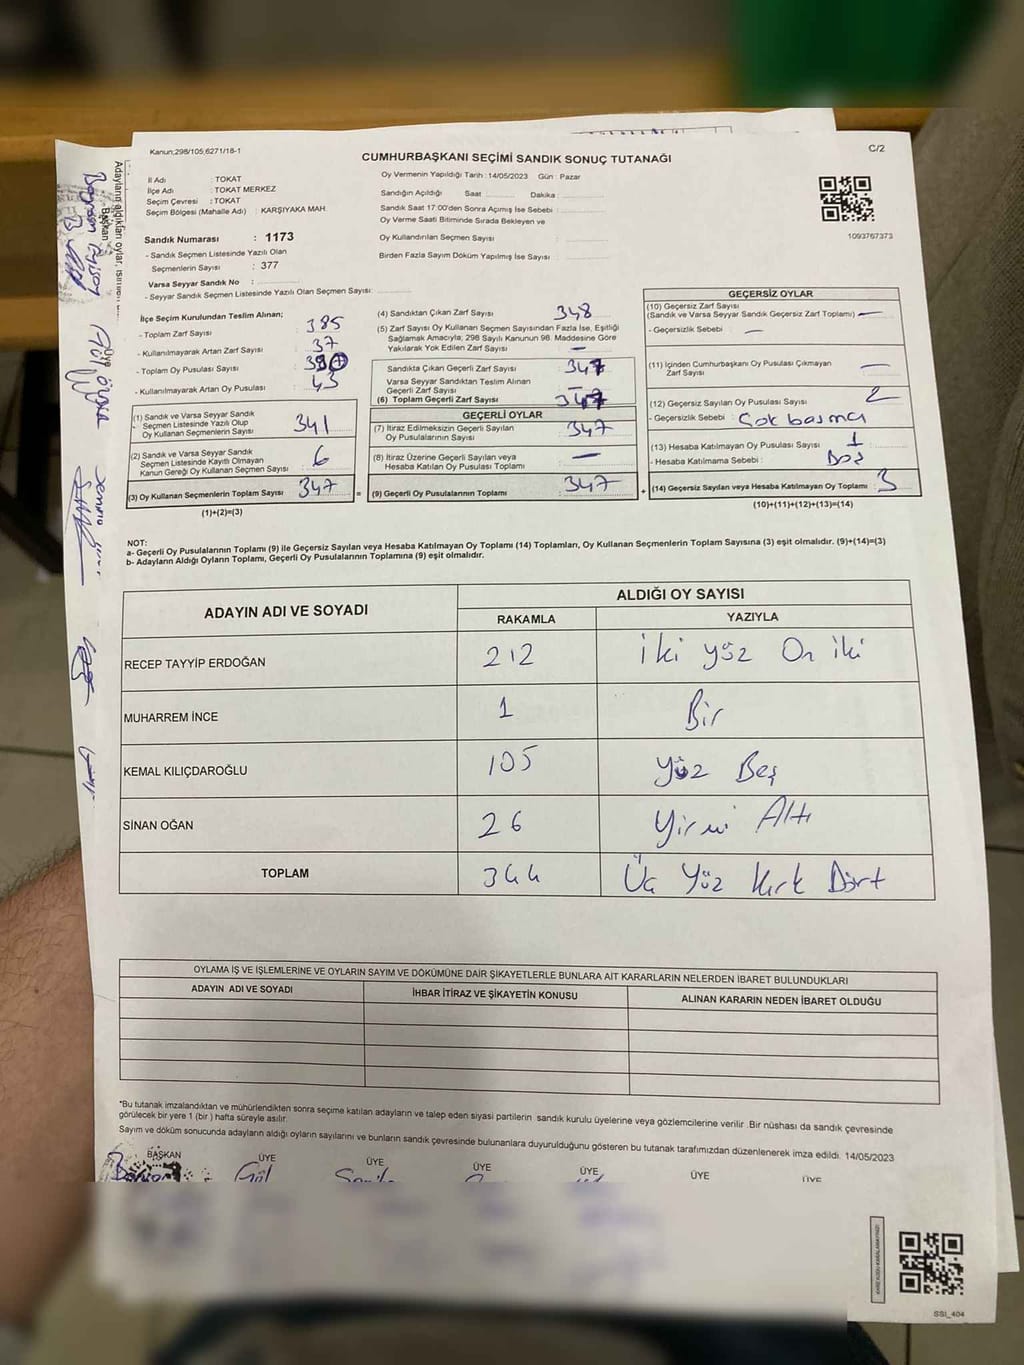 Kanun;298/105,6271/18-1
C/2
CUMHURBAŞKANI SEÇİMİ SANDIK SONUÇ TUTANAĞI
İl Adı : TOKAT
İlçe Adı : TOKAT MERKEZ
Seçim Çevresi : TOKAT
Seçim Bölgesi (Mahalle Adı) : KARŞIYAKA MAH.
Sandık Numarası : 1173
- Sandık Seçmen Listesinde Yazılı Olan
Seçmenlerin Sayısı : 377
Varsa Seyyar Sandık No :
- Seyyar Sandık Seçmen Listesinde Yazılı Olan Seçmen Sayısı:
Oy Vermenin Yapıldığı Tarih : 14/05/2023 Gün : Pazar
Sandığın Açıldığı Saat Dakika :
Sandık Saat 17:00'den Sonra Açımış İse Sebebi :
Oy Verme Saati Bitiminde Sırada Bekleyen ve
Oy Kullandırılan Seçmen Sayısı :
Birden Fazla Sayım Döküm Yapılmış İse Sayısı :
1093767373
İlçe Seçim Kurulundan Teslim Alınan;
- Toplam Zarf Sayısı : 385
- Kullanılmayarak Artan Zarf Sayısı : 37
- Toplam Oy Pusulası Sayısı :
- Kullanılmayarak Artan Oy Pusulası : 43
(1) Sandık ve Varsa Seyyar Sandık
Seçmen Listesinde Yazılı Olup
Oy Kullanan Seçmenlerin Sayısı : 341
(2) Sandık ve Varsa Seyyar Sandık
Seçmen Listesinde Kayıtlı Olmayan
Kanun Gereği Oy Kullanan Seçmen Sayısı : 6
(3) Oy Kullanan Seçmenlerin Toplam Sayısı : 347
(1)+(2)=(3)
(4) Sandıktan Çıkan Zarf Sayısı : 348
(5) Zarf Sayısı Oy Kullanan Seçmen Sayısından Fazla İse, Eşitliği
Sağlamak Amacıyla; 298 Sayılı Kanunun 98. Maddesine Göre
Yakılarak Yok Edilen Zarf Sayısı : —
Sandıkta Çıkan Geçerli Zarf Sayısı : 347
Varsa Seyyar Sandıktan Teslim Alınan
Geçerli Zarf Sayısı : —
(6) Toplam Geçerli Zarf Sayısı : 347
GEÇERLİ OYLAR
(7) İtiraz Edilmeksizin Geçerli Sayılan
Oy Pusulalarının Sayısı : 347
(8) İtiraz Üzerine Geçerli Sayılan veya
Hesaba Katılan Oy Pusulası Toplamı : —
= (9) Geçerli Oy Pusulalarının Toplamı : 347
GEÇERSİZ OYLAR
(10) Geçersiz Zarf Sayısı
(Sandık ve Varsa Seyyar Sandık Geçersiz Zarf Toplamı) : —
- Geçersizlik Sebebi : —
(11) İçinden Cumhurbaşkanı Oy Pusulası Çıkmayan
Zarf Sayısı : —
(12) Geçersiz Sayılan Oy Pusulası Sayısı : 2
- Geçersizlik Sebebi : Çok basma
(13) Hesaba Katılmayan Oy Pusulası Sayısı : 1
- Hesaba Katılmama Sebebi : Boş
+ (14) Geçersiz Sayılan veya Hesaba Katılmayan Oy Toplamı : 3
(10)+(11)+(12)+(13)=(14)
NOT:
a- Geçerli Oy Pusulalarının Toplamı (9) ile Geçersiz Sayılan veya Hesaba Katılmayan Oy Toplamı (14) Toplamları, Oy Kullanan Seçmenlerin Toplam Sayısına (3) eşit olmalıdır. (9)+(14)=(3)
b- Adayların Aldığı Oyların Toplamı, Geçerli Oy Pusulalarının Toplamına (9) eşit olmalıdır.
ADAYIN ADI VE SOYADI
ALDIĞI OY SAYISI
RAKAMLA YAZIYLA
RECEP TAYYİP ERDOĞAN 212 İki yüz On iki
MUHARREM İNCE 1 Bir
KEMAL KILIÇDAROĞLU 105 Yüz Beş
SİNAN OĞAN 26 Yirmi Altı
TOPLAM 344 Üç Yüz Kırk Dört
OYLAMA İŞ VE İŞLEMLERİNE VE OYLARIN SAYIM VE DÖKÜMÜNE DAİR ŞİKAYETLERLE BUNLARA AİT KARARLARIN NELERDEN İBARET BULUNDUKLARI
ADAYIN ADI VE SOYADI İHBAR İTİRAZ VE ŞİKAYETİN KONUSU ALINAN KARARIN NEDEN İBARET OLDUĞU
*Bu tutanak imzalandıktan ve mühürlendikten sonra seçime katılan adayların ve talep eden siyasi partilerin sandık kurulu üyelerine veya gözlemcilerine verilir .Bir nüshası da sandık çevresinde
görülecek bir yere 1 (bir ) hafta süreyle asılır.
Sayım ve döküm sonucunda adayların aldığı oyların sayılarını ve bunların sandık çevresinde bulunanlara duyurulduğunu gösteren bu tutanak tarafımızdan düzenlenerek imza edildi. 14/05/2023
BAŞKAN ÜYE ÜYE ÜYE ÜYE ÜYE ÜYE
Gül
SSI_404
Adayların aldıkları oylar,
Başkan
Üye